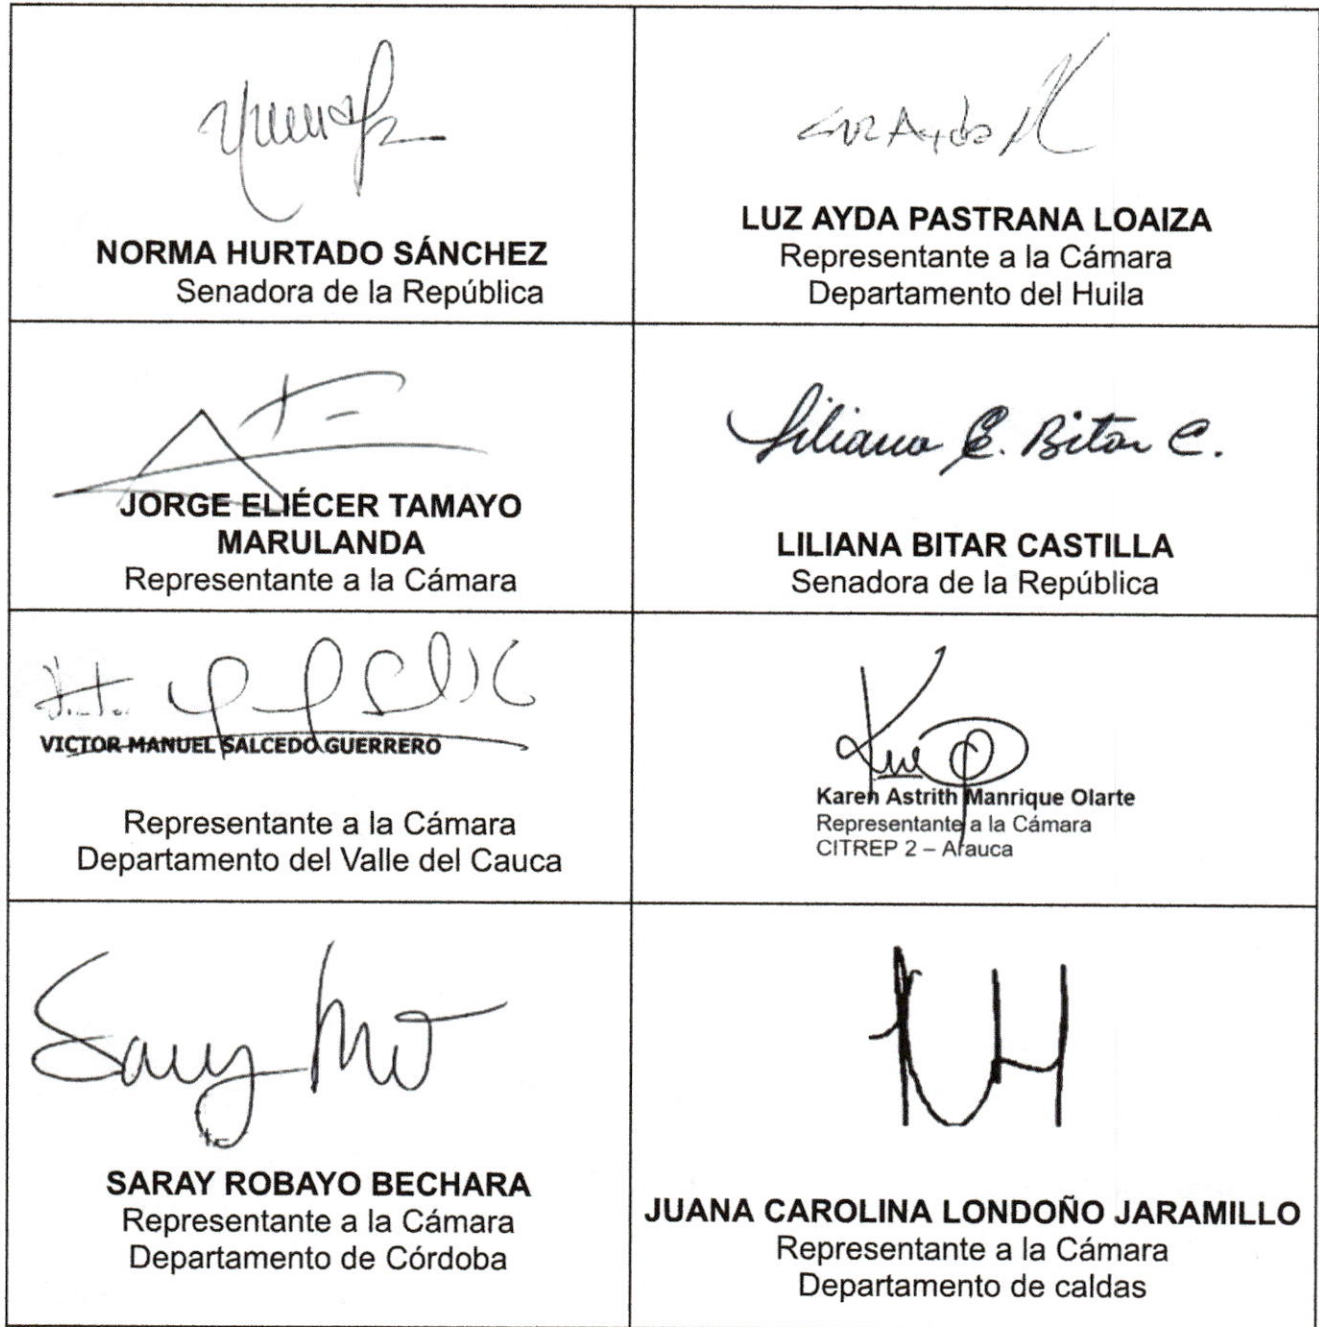 NORMA HURTADO SÁNCHEZ
Senadora de la República
Luz Ayda
LUZ AYDA PASTRANA LOAIZA
Representante a la Cámara
Departamento del Huila
JORGE ELIÉCER TAMAYO
MARULANDA
Representante a la Cámara
Liliana E. Bitar C.
LILIANA BITAR CASTILLA
Senadora de la República
VICTOR MANUEL SALCEDO GUERRERO
Representante a la Cámara
Departamento del Valle del Cauca
Karen Astrith Manrique Olarte
Representante a la Cámara
CITREP 2 – Arauca
Saray
SARAY ROBAYO BECHARA
Representante a la Cámara
Departamento de Córdoba
JUANA CAROLINA LONDOÑO JARAMILLO
Representante a la Cámara
Departamento de caldas